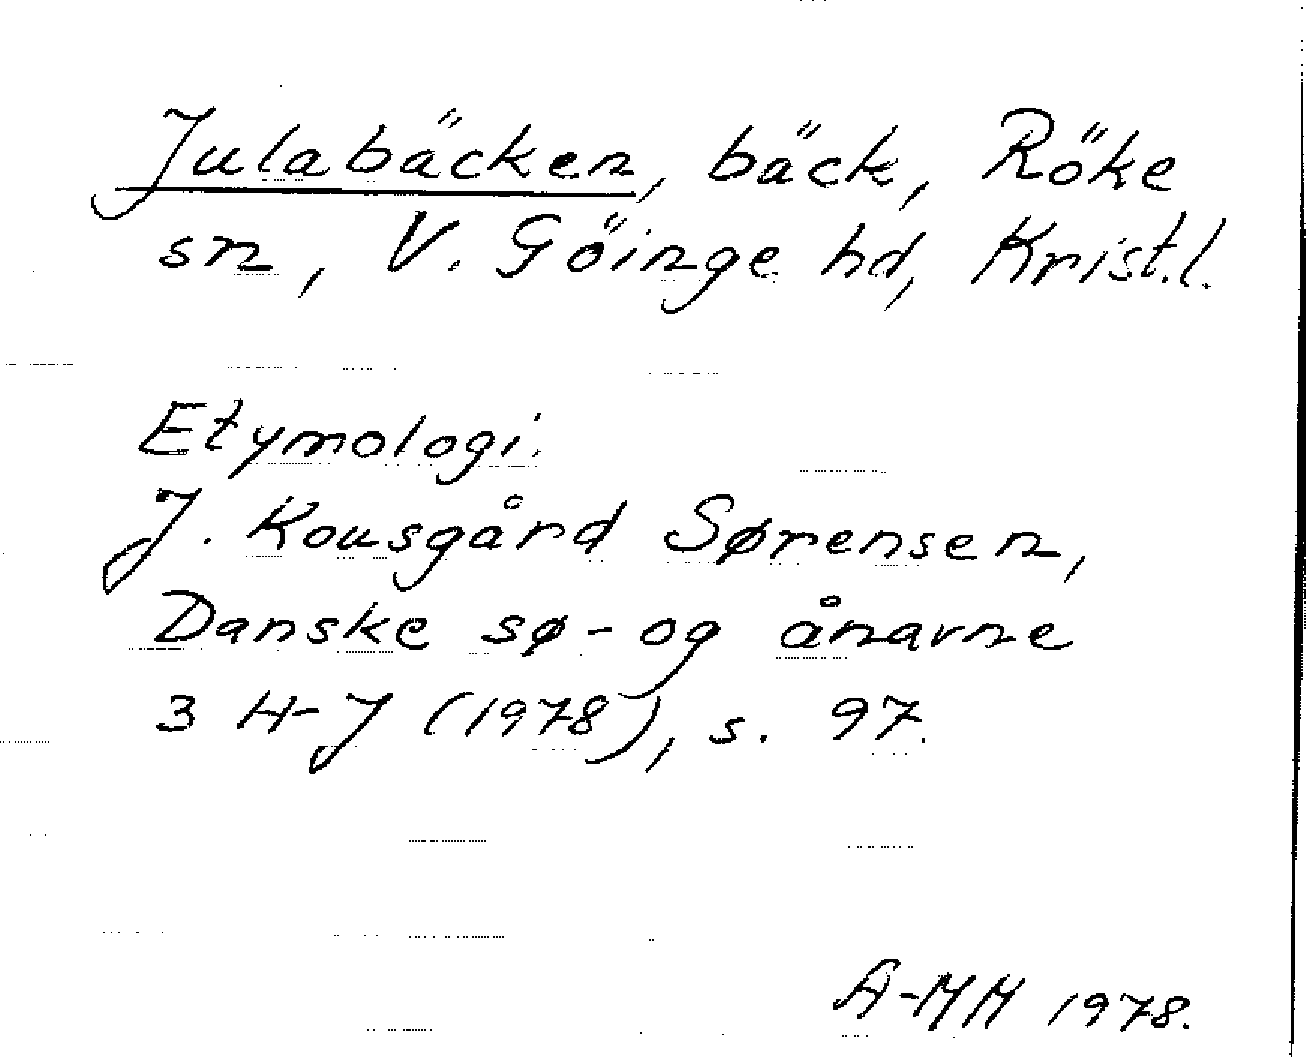 Julabäcken, bäck, Röke
sn, V. Göinge hd, Krist.l.
Etymologi.
J. Kousgård Sørensen,
Danske sø- og ånavne
3 H-J (1978), s. 97.
A-MM 1978.